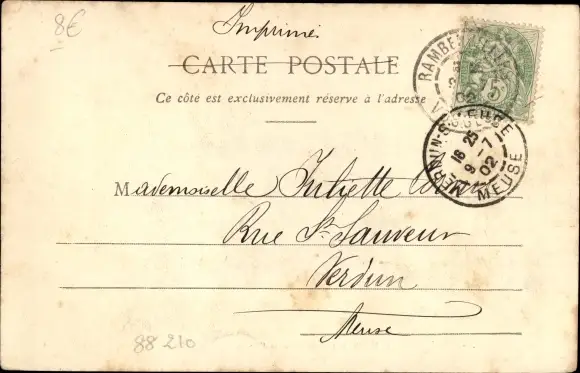 8€
Imprimé
CARTE POSTALE
Ce côté est exclusivement réservé à l'adresse
RAMBE
02
MEUSE
16 25
9 -7
02
Mademoiselle Juliette
Rue St Sauveur
Verdun
Meuse
88 210